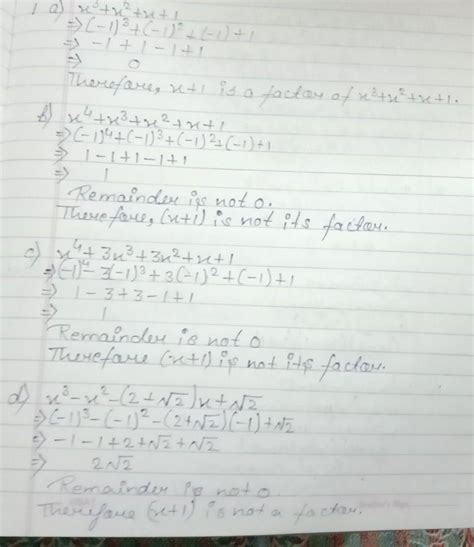 1 a) x³+x²+x+1
⇒ (-1)³+(-1)²+(-1)+1
⇒ -1+1-1+1
⇒ 0
Therefore, x+1 is a factor of x³+x²+x+1.
b) x⁴+x³+x²+x+1
⇒ (-1)⁴+(-1)³+(-1)²+(-1)+1
⇒ 1-1+1-1+1
⇒ 1
Remainder is not 0.
Therefore, (x+1) is not its factor.
c) x⁴+3x³+3x²+x+1
⇒ (-1)⁴-3(-1)³+3(-1)²+(-1)+1
⇒ 1-3+3-1+1
⇒ 1
Remainder is not 0
Therefore (x+1) is not its factor.
d) x³-x²-(2+√2)x+√2
⇒ (-1)³-(-1)²-(2+√2)(-1)+√2
⇒ -1-1+2+√2+√2
⇒ 2√2
Remainder is not 0.
Therefore (x+1) is not a factor.